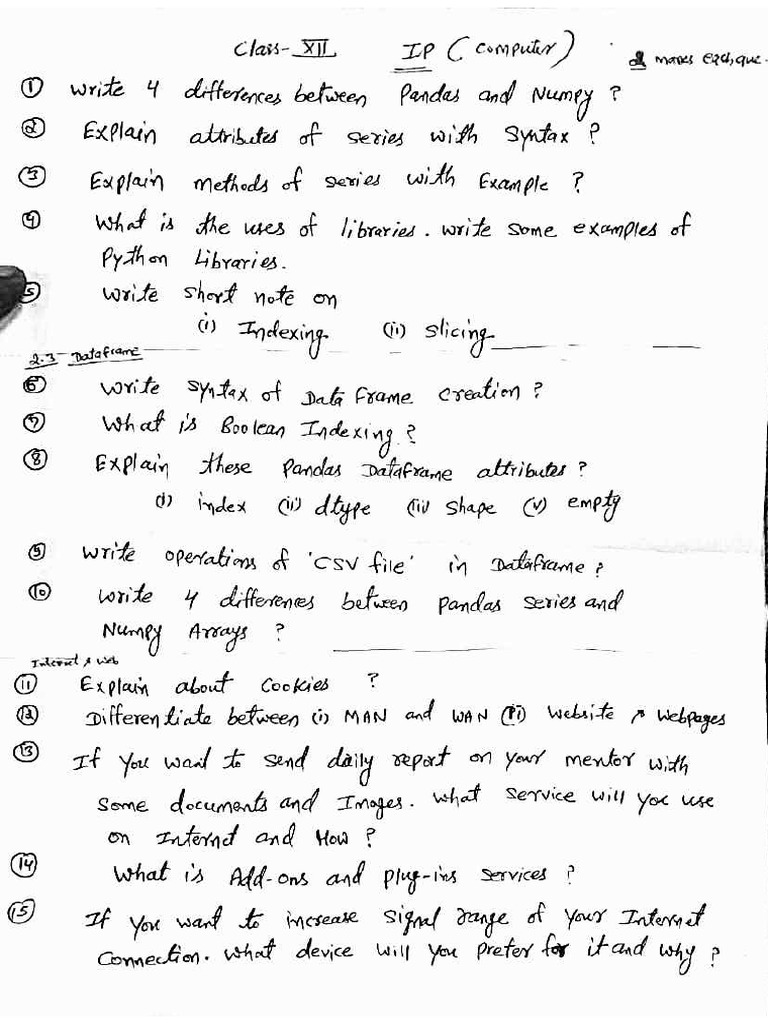 Class- XII IP ( Computer )
marks each que.
① Write 4 differences between Pandas and Numpy ?
② Explain attributes of series with Syntax ?
③ Explain methods of series with Example ?
④ What is the uses of libraries. write some examples of
Python Libraries.
⑤ Write short note on
(i) Indexing (ii) Slicing
2.3 Dataframe
⑥ Write syntax of Data Frame Creation ?
⑦ What is Boolean Indexing ?
⑧ Explain these Pandas Dataframe attributes ?
(i) index (ii) dtype (iii) shape (v) empty
⑨ Write operations of 'CSV file' in Dataframe ?
⑩ Write 4 differences between Pandas Series and
Numpy Arrays ?
Internet & Web
⑪ Explain about Cookies ?
⑫ Differentiate between (i) MAN and WAN (ii) Website & Webpages
⑬ If you want to send daily report on your mentor with
some documents and Images. what service will you use
on Internet and How ?
⑭ What is Add-ons and plug-ins services ?
⑮ If you want to increase signal range of your Internet
Connection. what device will you prefer for it and why ?